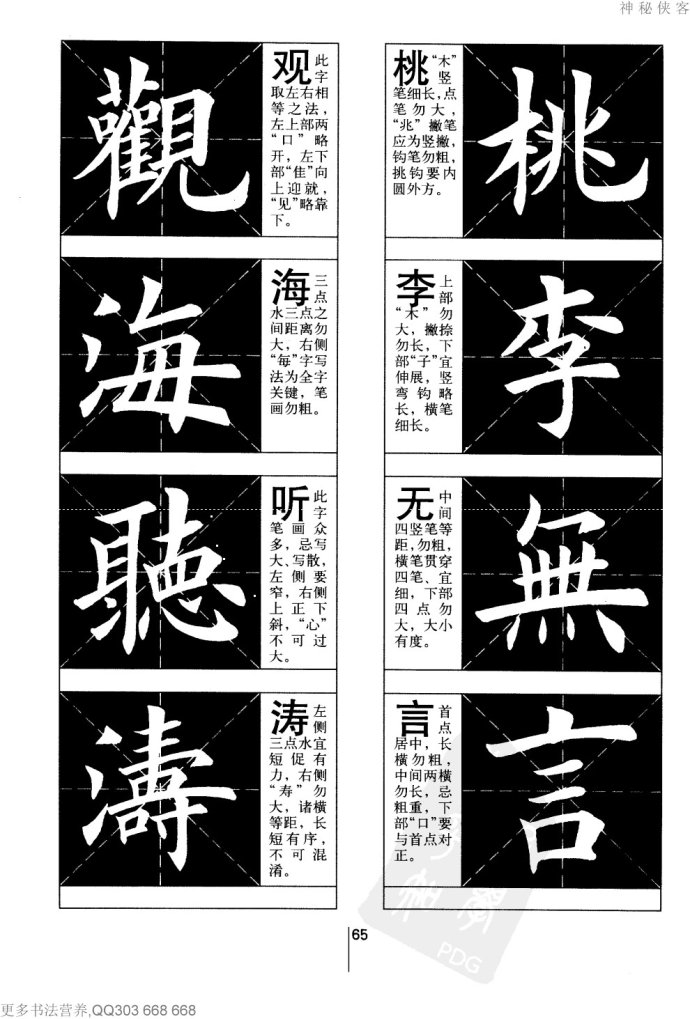 神秘侠客
桃
桃“木”
竖
笔细长，点
笔勿大，
“兆”撇笔
应为竖撇，
钩笔勿粗，
挑钩要内
圆外方。
李
李上
部
“木”勿
大，撇捺
勿长，下
部“子”宜
伸展，竖
弯钩略
长，横笔
细长。
無
无中
间
四竖笔等
距，勿粗，
横笔贯穿
四笔、宜
细，下部
四点勿
大，大小
有度。
言
言首
点
居中，长
横勿粗，
中间两横
勿长，忌
粗重，下
部“口”要
与首点对
正。
觀
观此
字
取左右相
等之法，
左上部两
“口”略
开，左下
部“隹”向
上迎就，
“见”略靠
下。
海
海三
点
水三点之
间距离勿
大，右侧
“每”字写
法为全字
关键，笔
画勿粗。
聽
听此
字
笔画众
多，忌写
大、写散，
左侧要
窄，右侧
上正下
斜，“心”
不可过
大。
濤
涛左
侧
三点水宜
短促有
力，右侧
“寿”勿
大，诸横
等距，长
短有序，
不可混
淆。
65
PDG
更多书法营养,QQ303 668 668